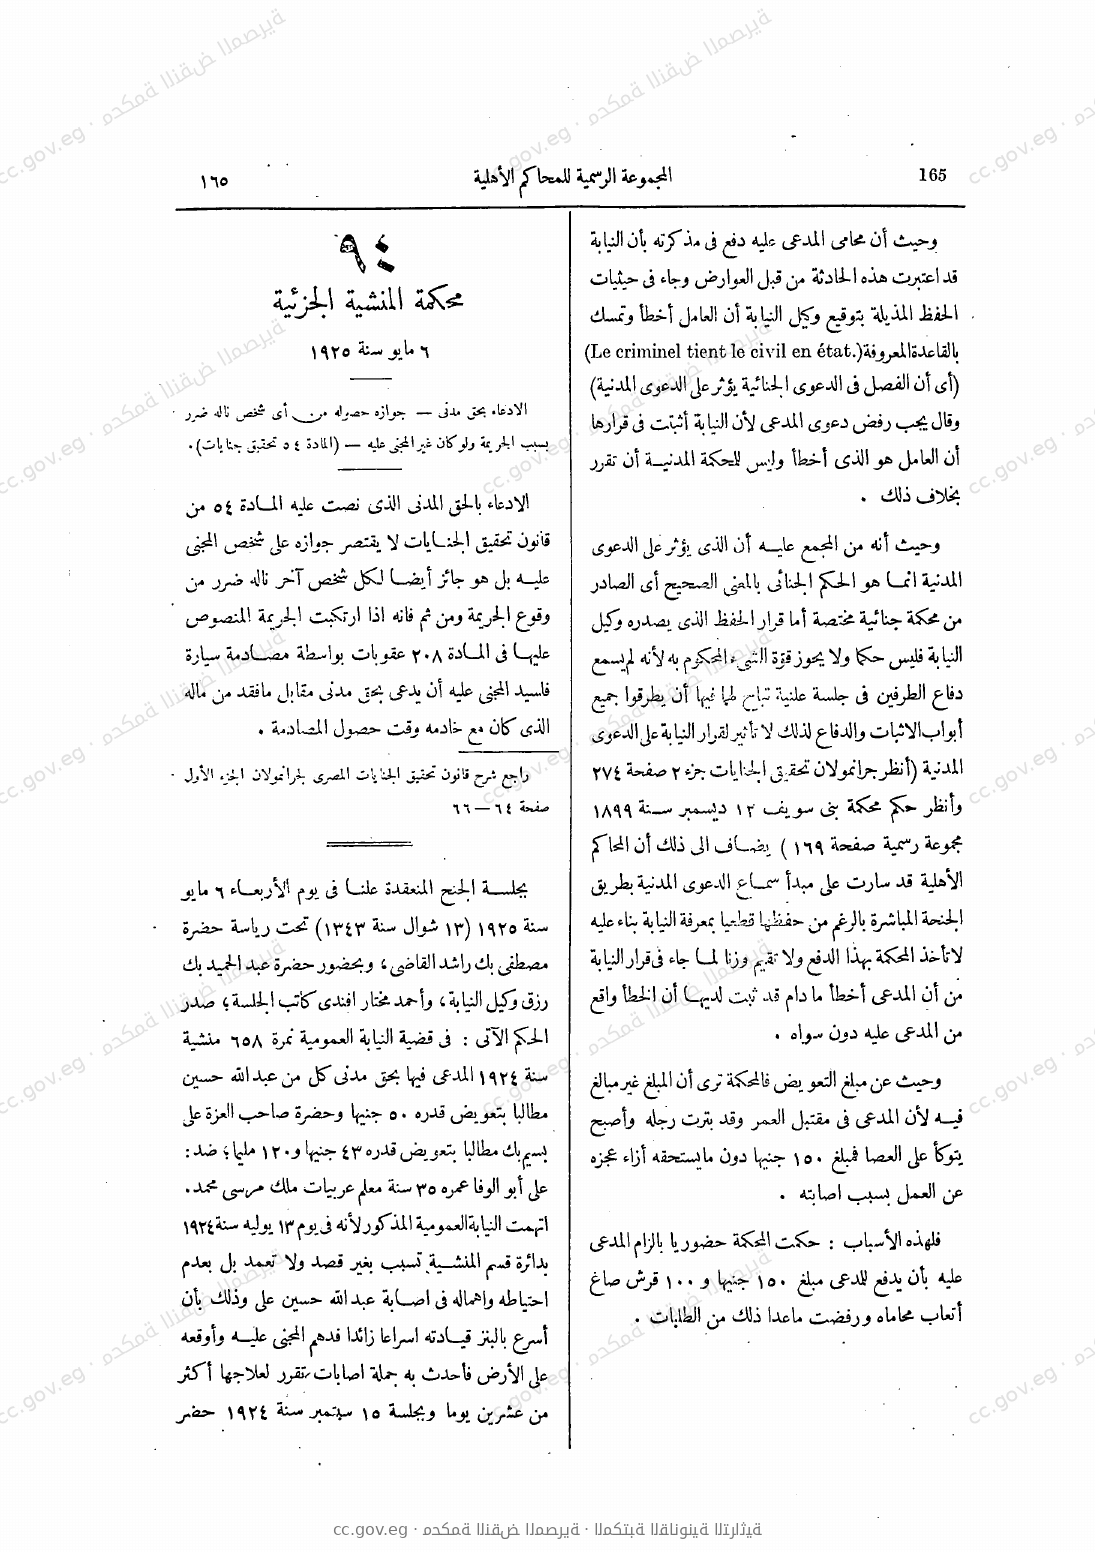 165
المجموعة الرسمية للمحاكم الأهلية
١٦٥
وحيث أن محامى المدعى عليه دفع فى مذكرته بأن النيابة
قد اعتبرت هذه الحادثة من قبل العوارض وجاء فى حيثيات
الحفظ المذيلة بتوقيع وكيل النيابة أن العامل أخطأ وتمسك
بالقاعدة المعروفة (Le criminel tient le civil en état.)
(أى أن الفصل فى الدعوى الجنائية يؤثر على الدعوى المدنية)
وقال يجب رفض دعوى المدعى لأن النيابة أثبتت فى قرارها
أن العامل هو الذى أخطأ وليس للمحكمة المدنية أن تقرر
بخلاف ذلك .
وحيث أنه من المجمع عليه أن الذى يؤثر على الدعوى
المدنية انما هو الحكم الجنائى بالمعنى الصحيح أى الصادر
من محكمة جنائية مختصة أما قرار الحفظ الذى يصدره وكيل
النيابة فليس حكما ولا يحوز قوّة الشىء المحكوم به لأنه لم يسمع
دفاع الطرفين فى جلسة علنية تباح لهما فيها أن يطرقوا جميع
أبواب الاثبات والدفاع لذلك لا تأثير لقرار النيابة على الدعوى
المدنية (أنظر جرانمولان تحقيق الجنايات جزء ٢ صفحة ٢٧٤
وأنظر حكم محكمة بنى سويف ١٢ ديسمبر سنة ١٨٩٩
مجموعة رسمية صفحة ١٦٩) يضاف الى ذلك أن المحاكم
الأهلية قد سارت على مبدأ سماع الدعوى المدنية بطريق
الجنحة المباشرة بالرغم من حفظها قطعيا بمعرفة النيابة بناء عليه
لا تأخذ المحكمة بهذا الدفع ولا تقيم وزنا لما جاء فى قرار النيابة
من أن المدعى أخطأ ما دام قد ثبت لديها أن الخطأ واقع
من المدعى عليه دون سواه .
وحيث عن مبلغ التعويض فالمحكمة ترى أن المبلغ غير مبالغ
فيه لأن المدعى فى مقتبل العمر وقد بترت رجله وأصبح
يتوكأ على العصا فمبلغ ١٥٠ جنيها دون ما يستحقه أزاء عجزه
عن العمل بسبب اصابته .
فلهذه الأسباب : حكمت المحكمة حضوريا بالزام المدعى
عليه بأن يدفع للمدعى مبلغ ١٥٠ جنيها و ١٠٠ قرش صاغ
أتعاب محاماه ورفضت ماعدا ذلك من الطلبات .
٩٤
محكمة المنشية الجزئية
٦ مايو سنة ١٩٢٥
الادعاء بحق مدنى — جوازه حصوله من أى شخص ناله ضرر
بسبب الجريمة ولو كان غير المجنى عليه — (المادة ٥٤ تحقيق جنايات).
الادعاء بالحق المدنى الذى نصت عليه المادة ٥٤ من
قانون تحقيق الجنايات لا يقتصر جوازه على شخص المجنى
عليه بل هو جائز أيضا لكل شخص آخر ناله ضرر من
وقوع الجريمة ومن ثم فانه اذا ارتكبت الجريمة المنصوص
عليها فى المادة ٢٠٨ عقوبات بواسطة مصادمة سيارة
فلسيد المجنى عليه أن يدعى بحق مدنى مقابل مافقد من ماله
الذى كان مع خادمه وقت حصول المصادمة .
راجع شرح قانون تحقيق الجنايات المصرى لجرانمولان الجزء الأول
صفحة ٦٤ — ٦٦
بجلسة الجنح المنعقدة علنا فى يوم الأربعاء ٦ مايو
سنة ١٩٢٥ (١٣ شوال سنة ١٣٤٣) تحت رياسة حضرة
مصطفى بك راشد القاضى، وبحضور حضرة عبد الحميد بك
رزق وكيل النيابة، وأحمد مختار افندى كاتب الجلسة؛ صدر
الحكم الآتى : فى قضية النيابة العمومية نمرة ٦٥٨ منشية
سنة ١٩٢٤ المدعى فيها بحق مدنى كل من عبد الله حسين
مطالبا بتعويض قدره ٥٠ جنيها وحضرة صاحب العزة على
بسيم بك مطالبا بتعويض قدره ٤٣ جنيها و١٢٠ مليما؛ ضد :
على أبو الوفا عمره ٣٥ سنة معلم عربيات ملك مرسى محمد.
اتهمت النيابة العمومية المذكور لأنه فى يوم ١٣ يوليه سنة ١٩٢٤
بدائرة قسم المنشية تسبب بغير قصد ولا تعمد بل بعدم
احتياطه واهماله فى اصابة عبد الله حسين على وذلك بأن
أسرع بالبنز قيادته اسراعا زائدا فدهم المجنى عليه وأوقعه
على الأرض فأحدث به جملة اصابات تقرر لعلاجها أكثر
من عشرين يوما وبجلسة ١٥ سبتمبر سنة ١٩٢٤ حضر
cc.gov.eg · محكمة النقض المصرية · المكتبة القانونية التراثية